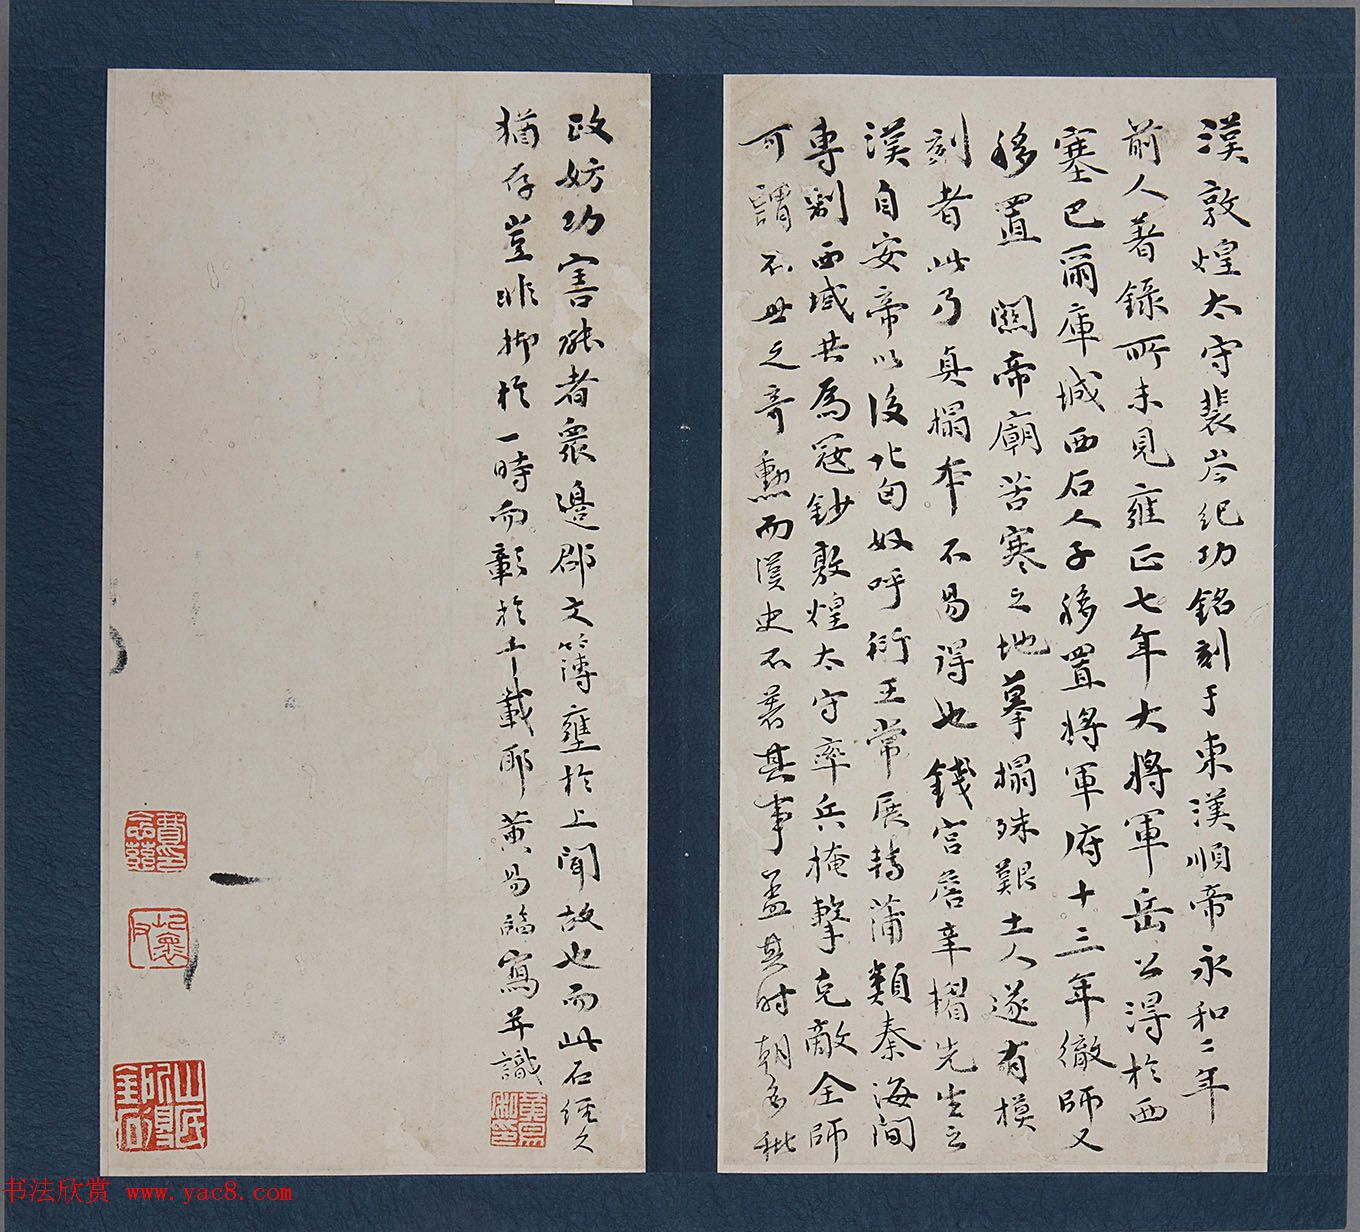 漢敦煌太守裴岑紀功銘刻于東漢順帝永和二年
前人著錄所未見雍正七年大將軍岳公得於西
塞巴爾庫城西石人子移置將軍府十三年徹師又
移置 關帝廟苦寒之地摹搨殊艱土人遂有模
刻者此乃真搨本不易得也錢宮詹辛楣先生云
漢自安帝以後北匈奴呼衍王常展轉蒲類秦海間
專制西域共為寇鈔敦煌太守率兵掩擊克敵全師
可謂不世之奇勲而漢史不著其事蓋其時朝多秕
政妨功害能者眾邊郡文簿壅於上聞故也而此石經久
猶存豈非抑於一時而彰於千載耶 黃易臨寫并識
黃易私印
費念慈
屺懷父
山民所得金石
书法欣赏 www.yac8.com